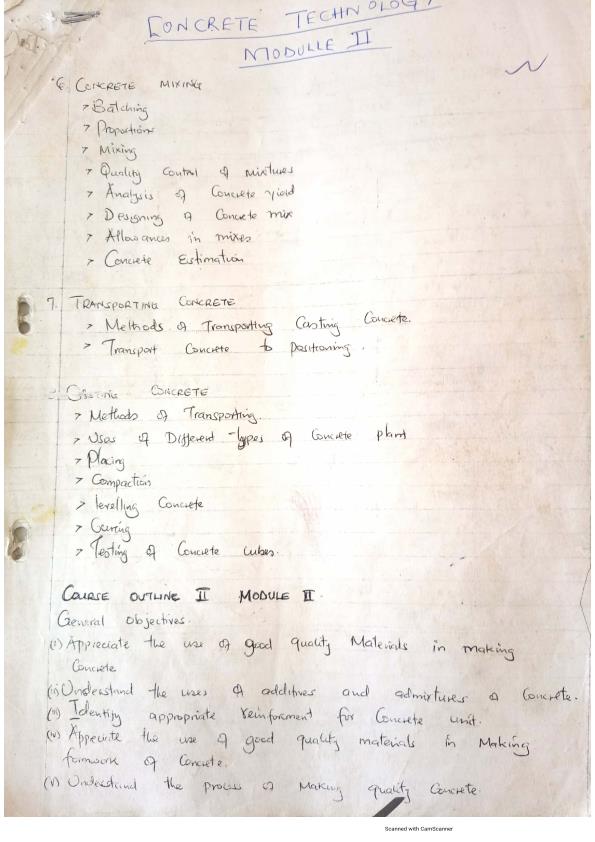 CONCRETE TECHNOLOGY
MODULLE II
6. CONCRETE MIXING
> Batching
> Proportions
> Mixing
> Quality Control of mixtures
> Analysis of Concrete yield
> Designing of Concrete mix
> Allowances in mixes
> Concrete Estimation
7. TRANSPORTING CONCRETE
> Methods of Transporting Casting Concrete.
> Transport Concrete to positioning.
CONCRETE
> Methods of Transporting.
> Uses of Different types of Concrete plant
> Placing
> Compaction
> levelling Concrete
> Curring
> Testing of Concrete cubes.
COURSE OUTLINE II MODULE II.
General Objectives.
(i) Appreciate the use of good quality Materials in making
Concrete
(ii) Understand the uses of additives and admixtures of Concrete.
(iii) Identify appropriate reinforment for Concrete unit.
(iv) Appeciate the use of good quality materials in Making
formwork of Concrete.
(v) Understand the process of Making quality Concrete.
Scanned with CamScanner